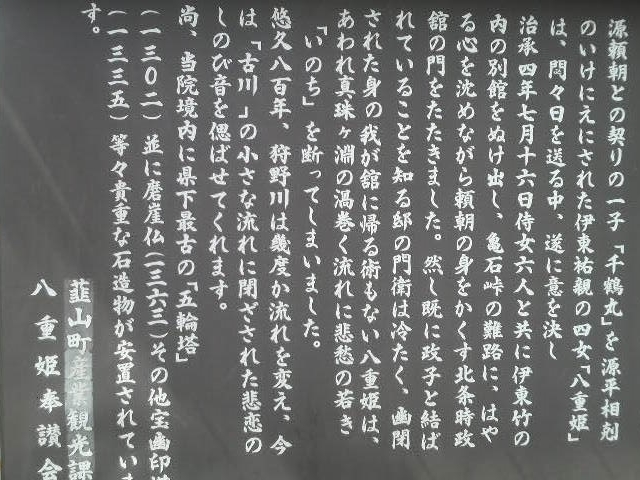 源頼朝との契りの一子「千鶴丸」を源平相剋
のいけにえにされた伊東祐親の四女「八重姫」
は、悶々日を送る中、遂に意を決し
治承四年七月十六日侍女六人と共に伊東竹の
内の別館をぬけ出し、亀石峠の難路に、はや
る心を沈めながら頼朝の身をかくす北条時政
舘の門をたたきました。然し既に政子と結ば
れていることを知る邸の門衛は冷たく、幽閉
された身の我が舘に帰る術もない八重姫は、
あわれ真珠ヶ淵の渦巻く流れに悲愁の若き
「いのち」を断ってしまいました。
悠久八百年、狩野川は幾度か流れを変え、今
は「古川」の小さな流れに閉ざされた悲恋の
しのび音を偲ばせてくれます。
尚、当院境内に県下最古の「五輪塔」
(一三〇二)並に磨崖仏(一三六三)その他宝幽印
(一三三五)等々貴重な石造物が安置されていま
す。
韮山町産業観光課
八重姫奉讃会